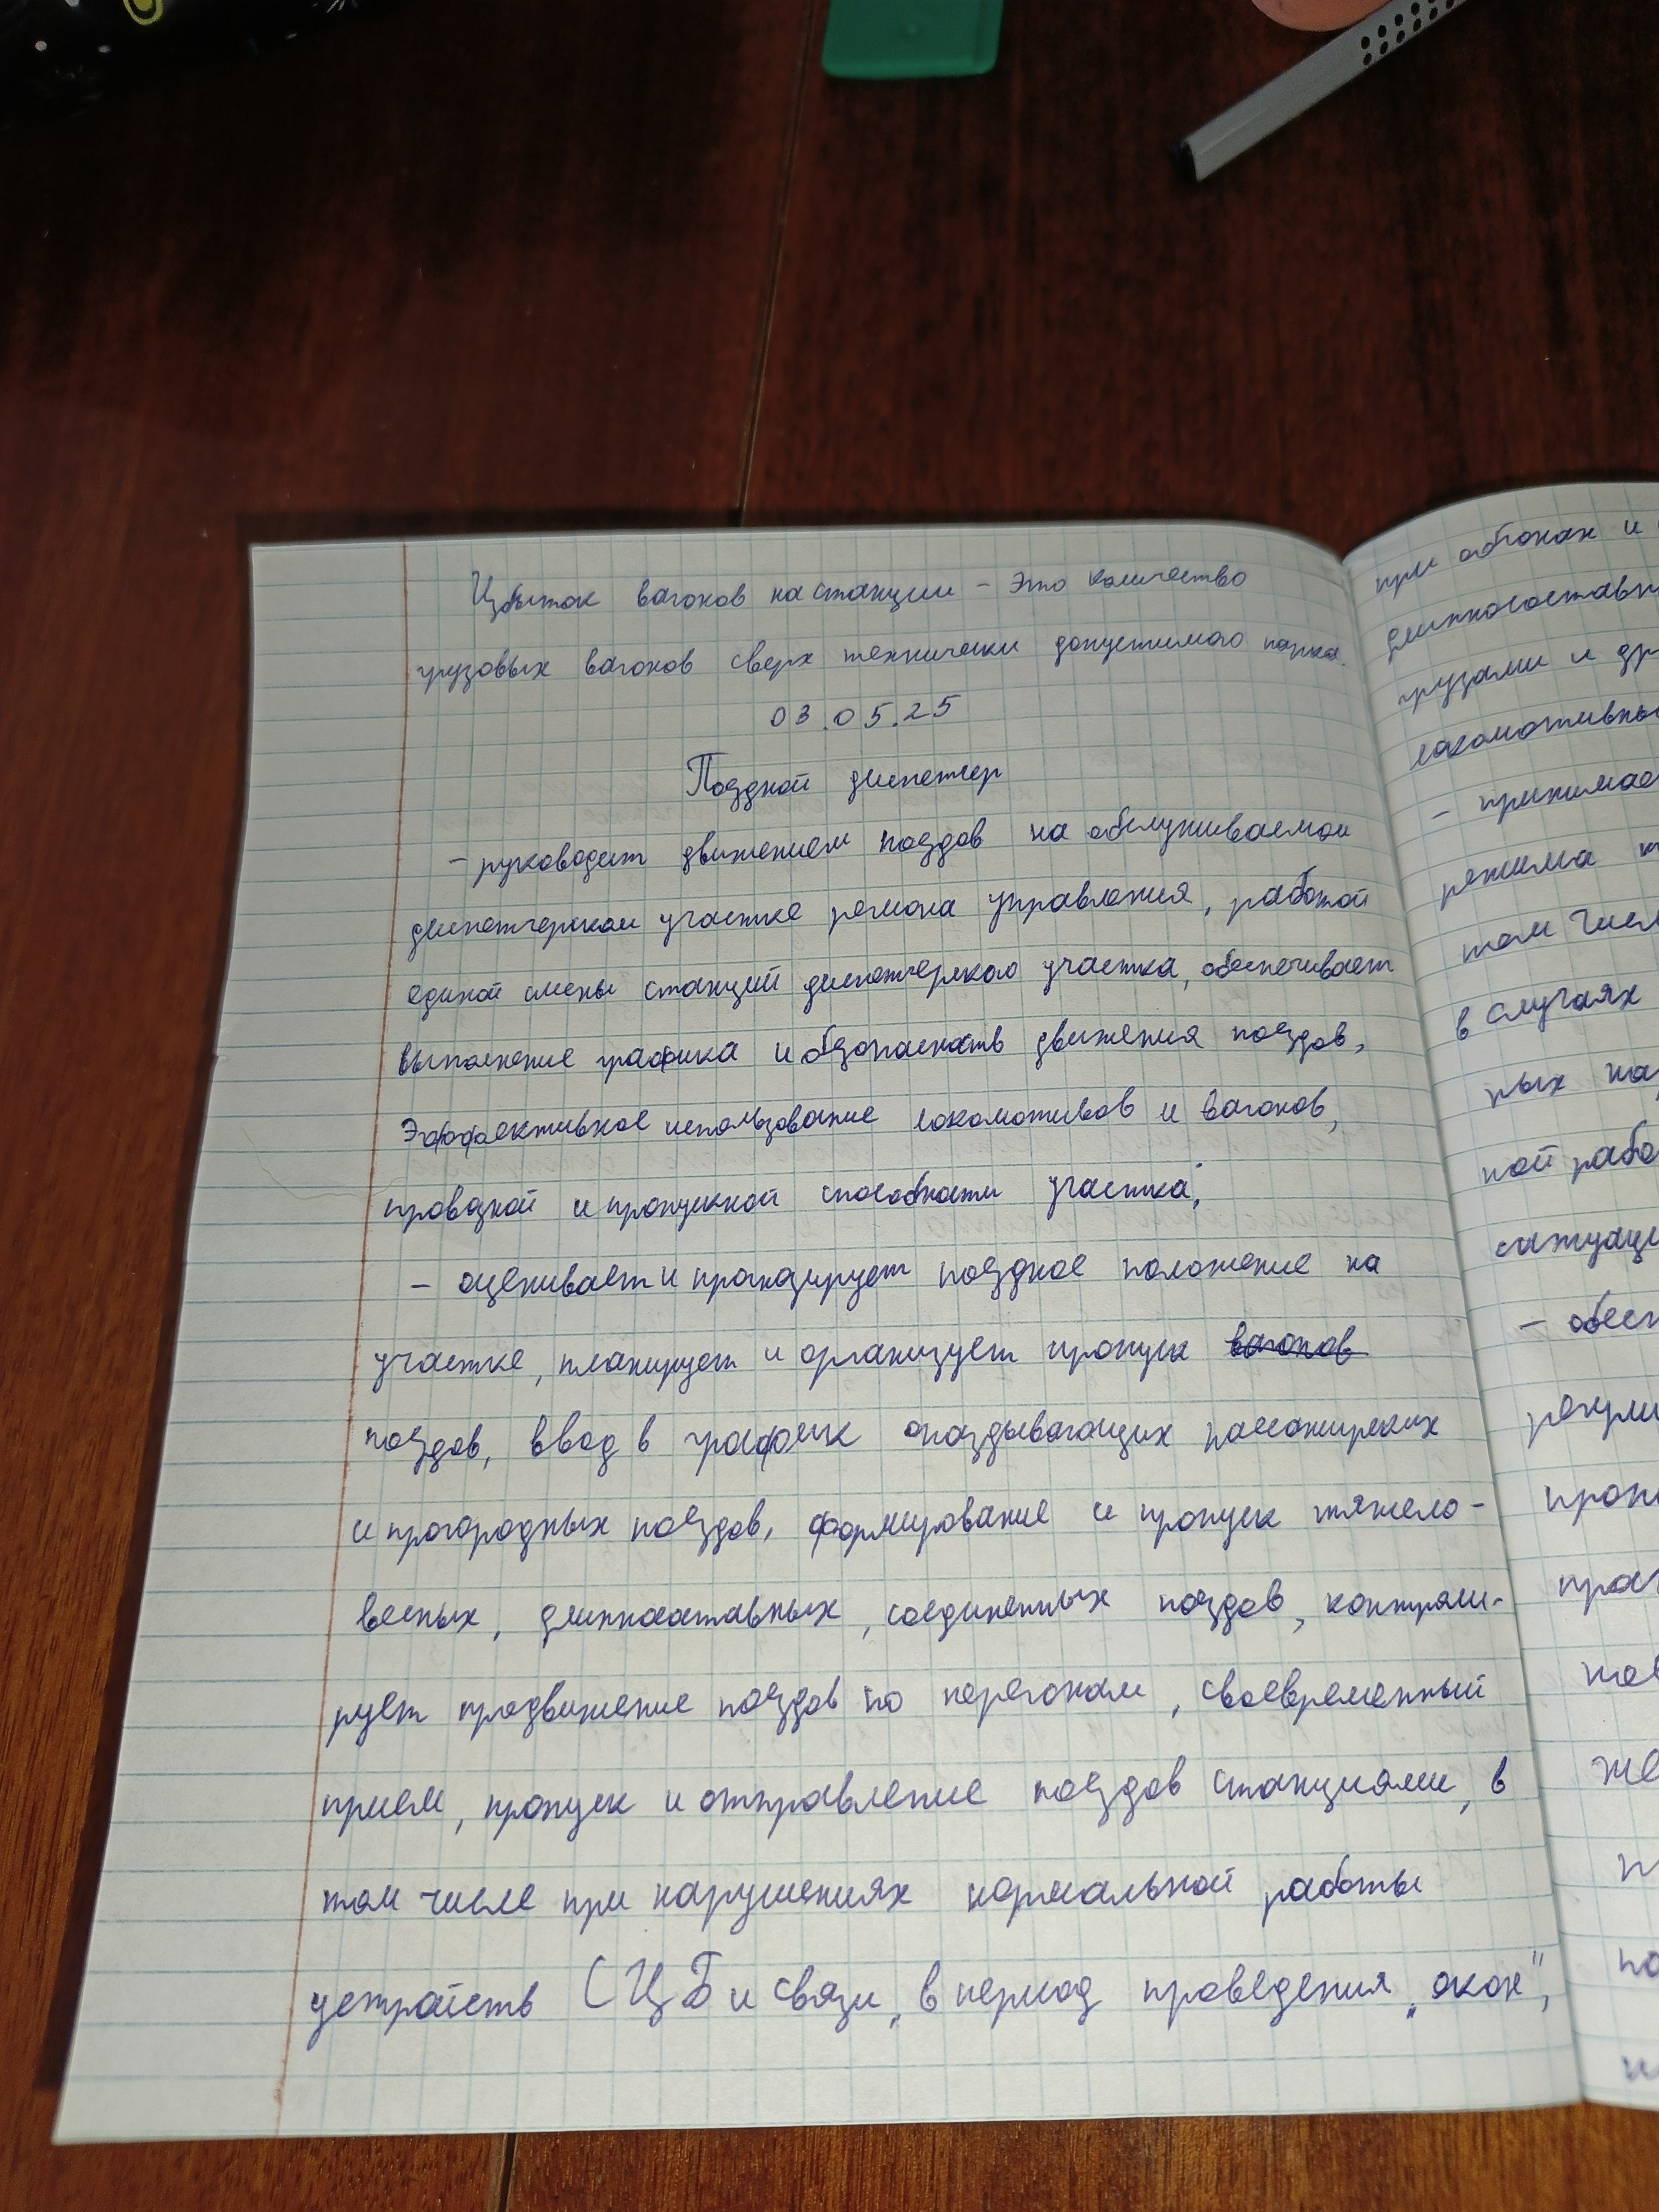 Избыток вагонов на станции – это количество
грузовых вагонов сверх технически допустимого парка.
03.05.25
Поездной диспетчер
– руководит движением поездов на обслуживаемом
диспетчерском участке региона управления, работой
единой смены станций диспетчерского участка, обеспечивает
выполнение графика и безопасность движения поездов,
Эффективное использование локомотивов и вагонов,
провозной и пропускной способности участка;
– оценивает и прогнозирует поездное положение на
участке, планирует и организует пропуск вагонов
поездов, ввод в график опаздывающих пассажирских
и пригородных поездов, формирование и пропуск тяжело-
весных, длинносоставных, соединенных поездов, контроли-
рует продвижение поездов по перегонам, своевременный
прием, пропуск и отправление поездов станциями, в
том числе при нарушениях нормальной работы
устройств СЦБ и связи, в период проведения „окон",
при обгонах и
длинносоставн
грузами и др
локомотивны
– принимае
режима
том числ
в случаях
ных на
ной рабо
ситуаци
– обесп